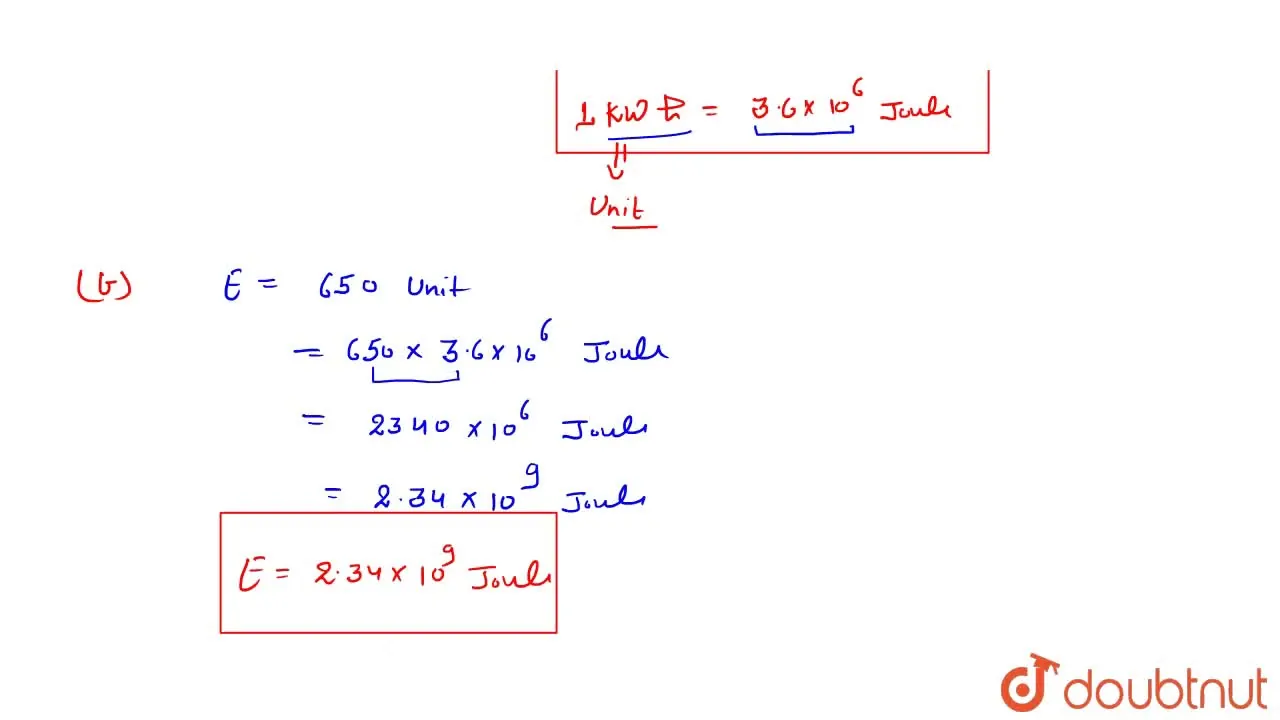 1 KWh = 3.6 × 10⁶ Joule
Unit
(b) E = 650 Unit
= 650 × 3.6 × 10⁶ Joule
= 2340 × 10⁶ Joule
= 2.34 × 10⁹ Joule
E = 2.34 × 10⁹ Joule
doubtnut